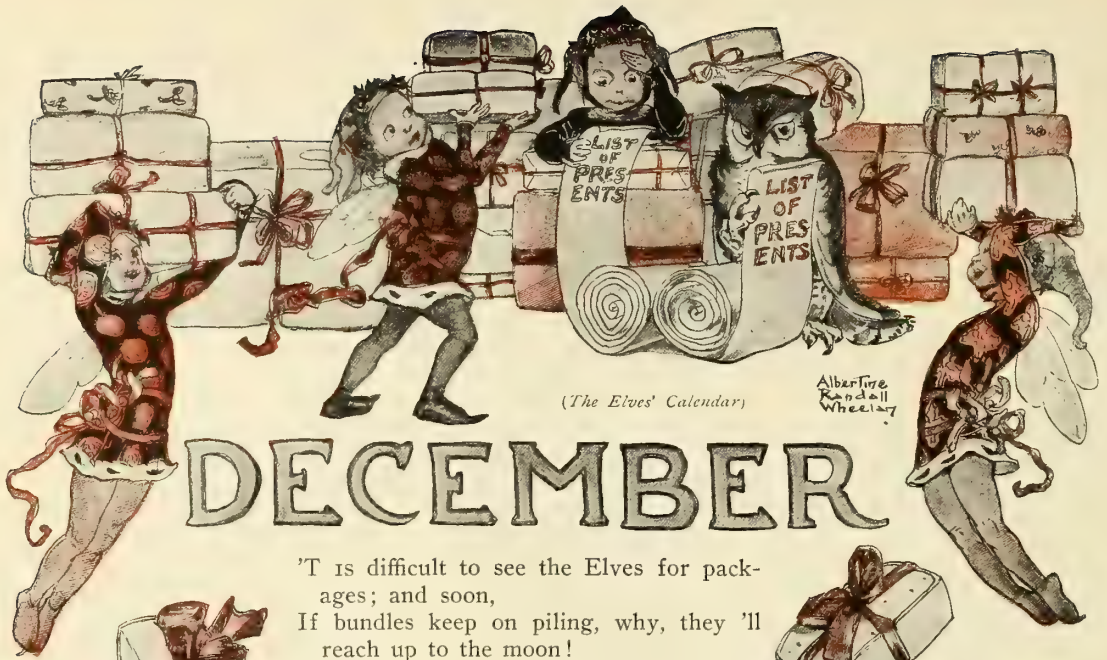 LIST
OF
PRES
ENTS
LIST
OF
PRES
ENTS
(The Elves' Calendar)
Albertine
Randall
Wheelan
DECEMBER
'T IS difficult to see the Elves for pack-
ages; and soon,
If bundles keep on piling, why, they 'll
reach up to the moon!